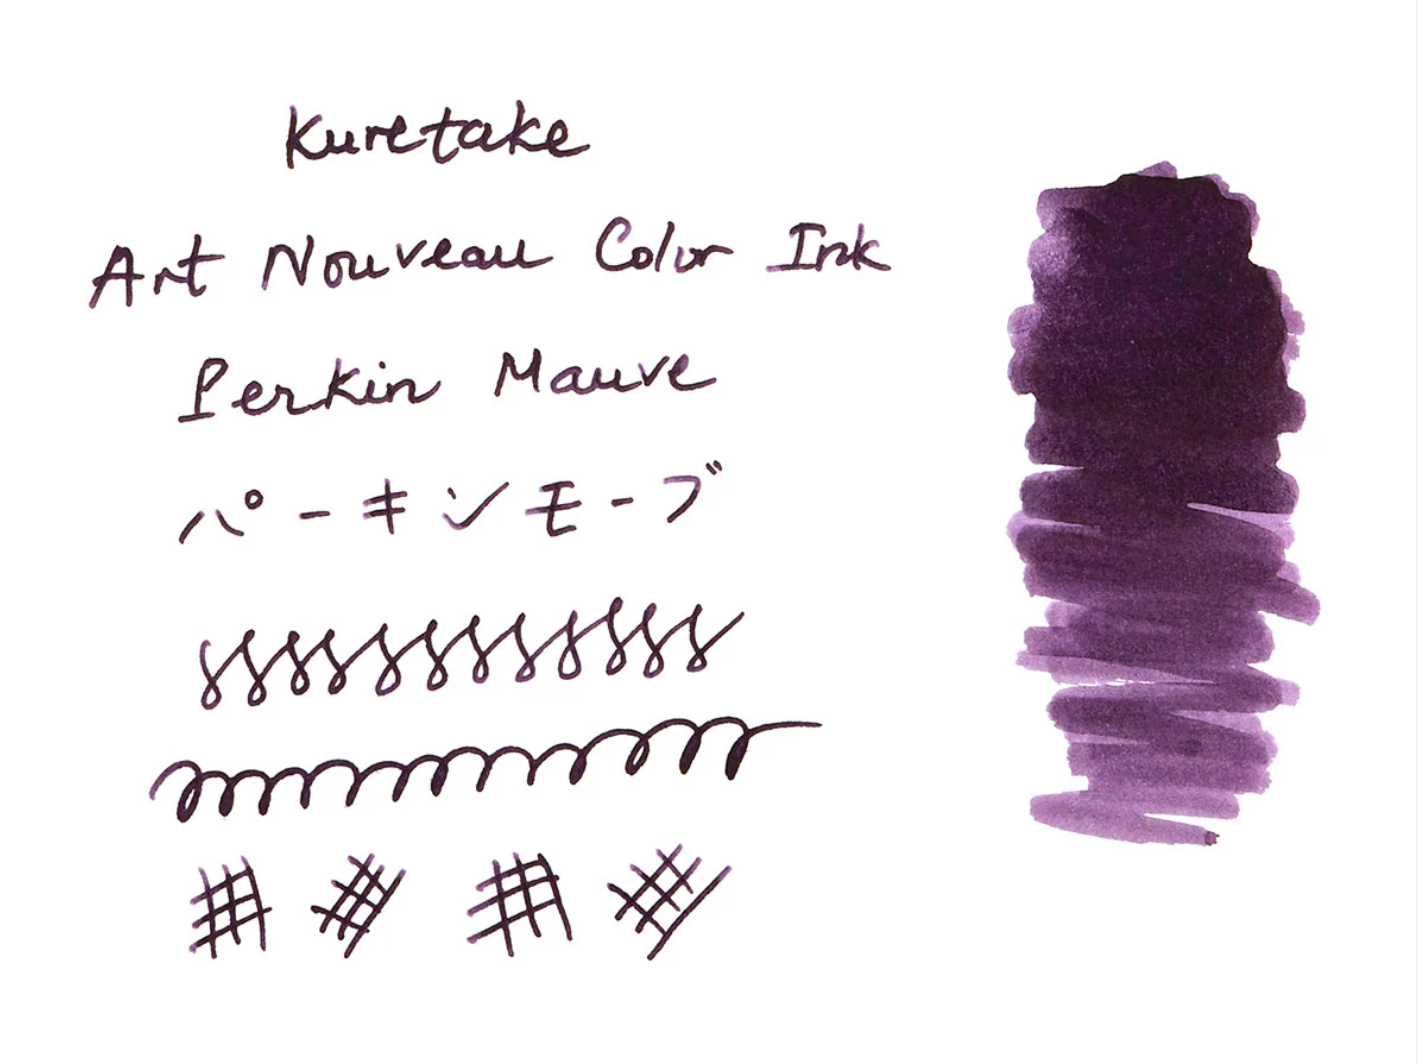 Kuretake
Art Nouveau Color Ink
Perkin Mauve
パーキンモーブ